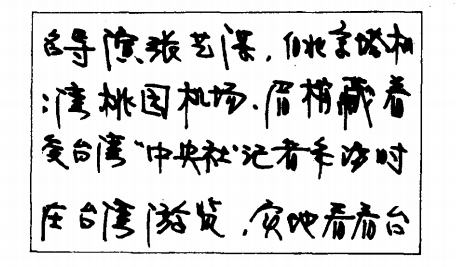 名导演张艺谋,自北京搭机
湾桃园机场.眉梢藏着
受台湾“中央社”记者采访时
在台湾游览,实地看看台